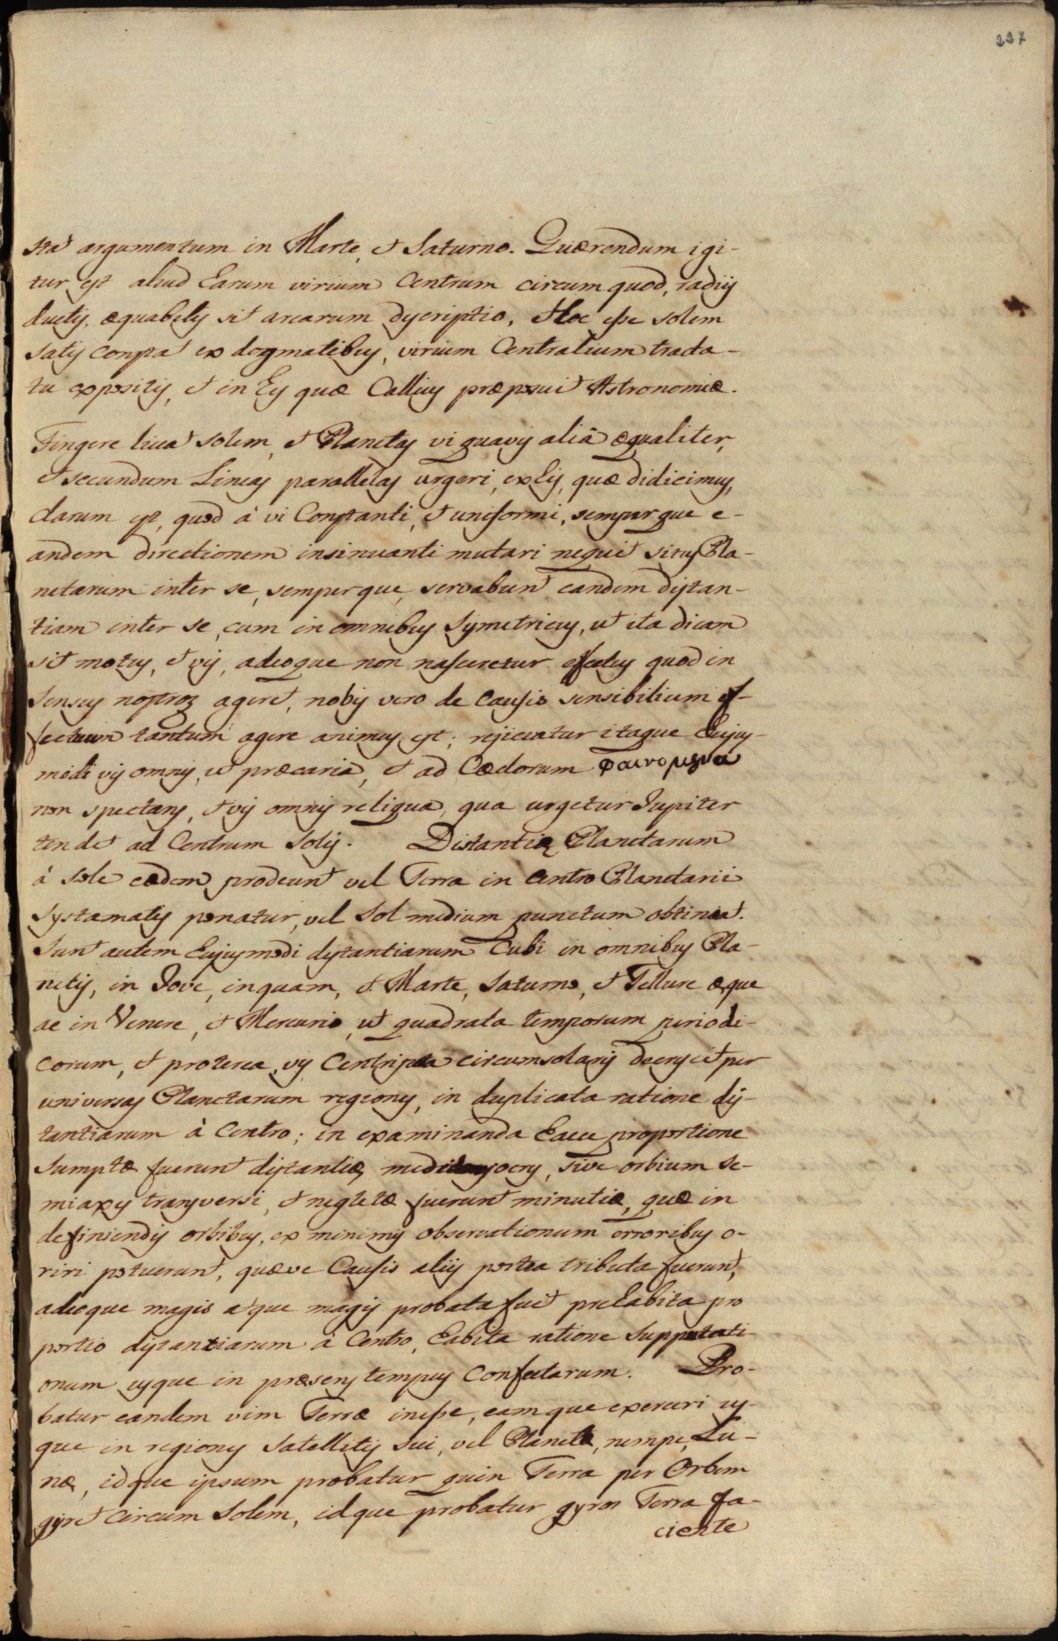 227
sta argumentum in Marte, et Saturno. Quærendum igi-
tur est aliud Earum virium Centrum circum quod, radiis
ductis, æquabilis sit arearum descriptio, Hoc esse solem
satis constat ex dogmatibus, virium Centralium tracta-
tu expositis, et in Eis quæ Callius præposui Astronomiæ.
Fingere liceat solem, et Planetas vi quavis aliâ æqualiter,
et secundum Lineas parallelas urgeri, ex Eis, quæ didicimus,
clarum est, quod à vi Constanti, et uniformi, semperque e-
andem directionem insinuanti mutari nequit situs Pla-
netarum inter se, semperque, servabunt eandem distan-
tiam inter se, cum in omnibus symetricus, ut ita dicam
sit motus, et vis, adeoque non nasceretur efectus quod in
sensus nostros ageret, nobis vero de Causis sensibilium ef-
fectuum tantum agere animus est; rejiciatur itaque Ejus-
modi vis omnis, ut præcaria, et ad Cœlorum φαινομενα
non spectans, et vis omnis reliqua, qua urgetur Jupiter
tendet ad Centrum Solis. Distantiæ Planetarum
à Sole eædem prodeunt vel Terra in Centro Planetarii
systamatis ponatur, vel Sol medium punctum obtineat.
Sunt autem Ejusmodi distantiarum Cubi in omnibus Pla-
netis, in Jove, inquam, et Marte, Saturno, et Tellure æque
ac in Venere, et Mercurio, ut quadrata temporum periodi-
corum, et proterea, vis Centripeta circumsolaris decrescit per
universas Planetarum regiones, in duplicata ratione dis-
tantiarum à Centro; in examinanda Eace proportione
Sumptæ fuerunt distantiæ mediocres, sive orbium se-
miaxes transversi, et neglectæ fuerunt minutiæ, quæ in
definiendis orbibus, ex minimis observationum erroribus o-
riri potuerunt, quæve Causis aliis postea tributa fuerunt,
adeoque magis atque magis probata fuit prelabita pro
portio distantiarum à Centro, Eabita ratione Supputati-
onum usque in præsens tempus Confectarum. Pro-
batur eandem vim Terræ inesse, eamque exerceri us-
que in regiones Satellitis sui, vel Planetæ, nempe, Lu-
næ, idque ipsum probatur quin Terra per Orbem
gyret circum Solem, idque probatur gyros Terra fa-
ciente